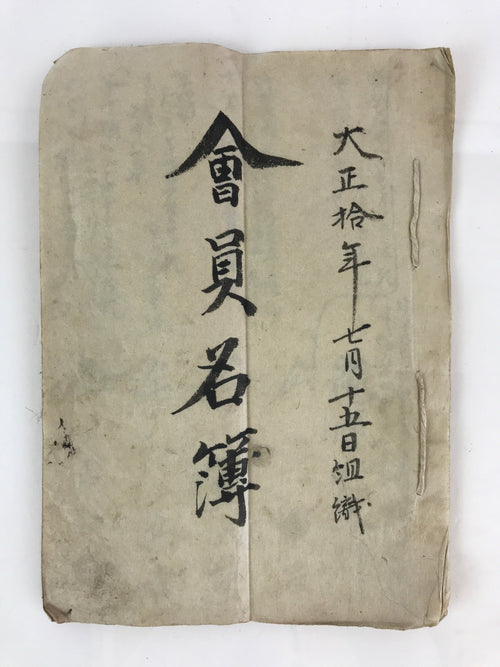 大正拾年七月十五日組織
會員名簿